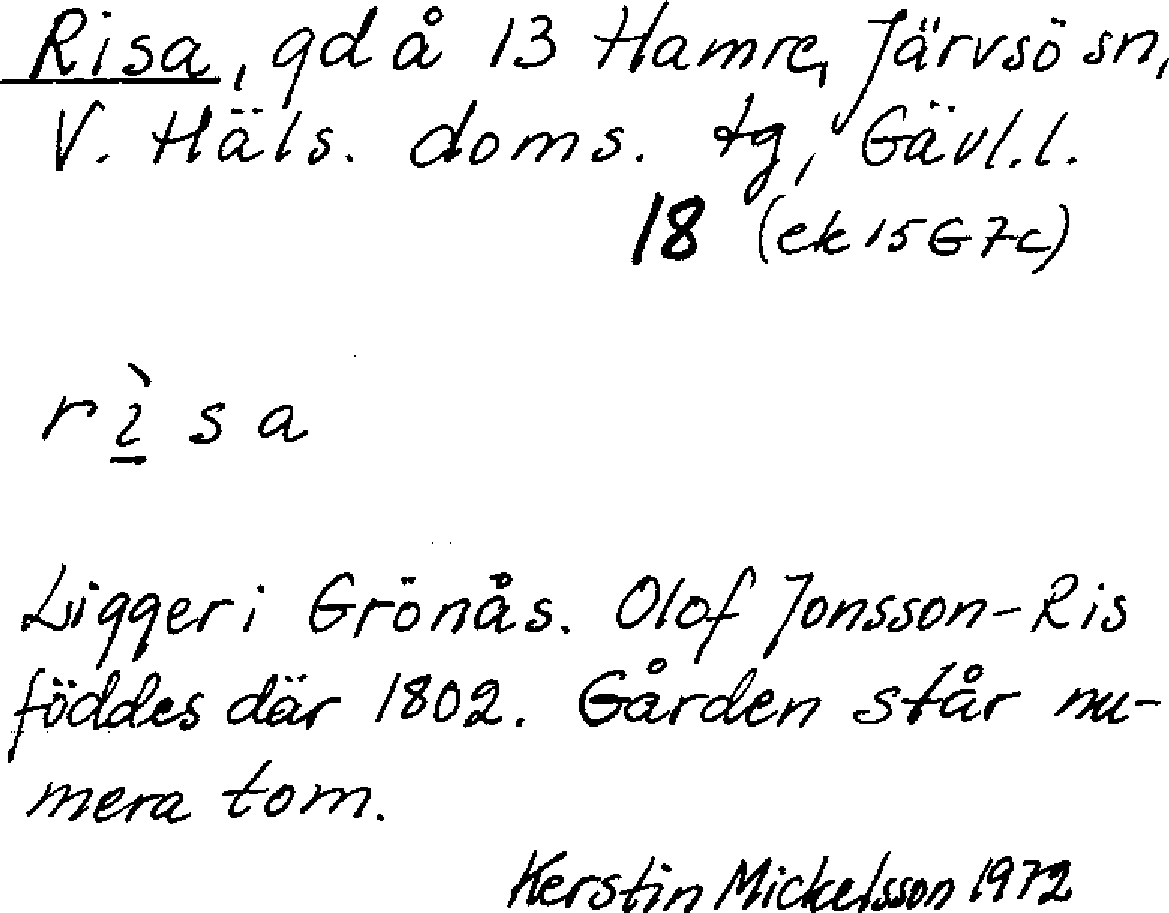 Risa, gd å 13 Hamre, Järvsö sn,
V. Häls. doms. tg, Gävl.l.
18 (ek 15G7c)
rı̱̀sa
Ligger i Grönås. Olof Jonsson-Ris
föddes där 1802. Gården står nu-
mera tom.
Kerstin Mickelsson 1972